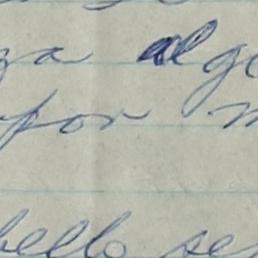 za alg
por
bello se